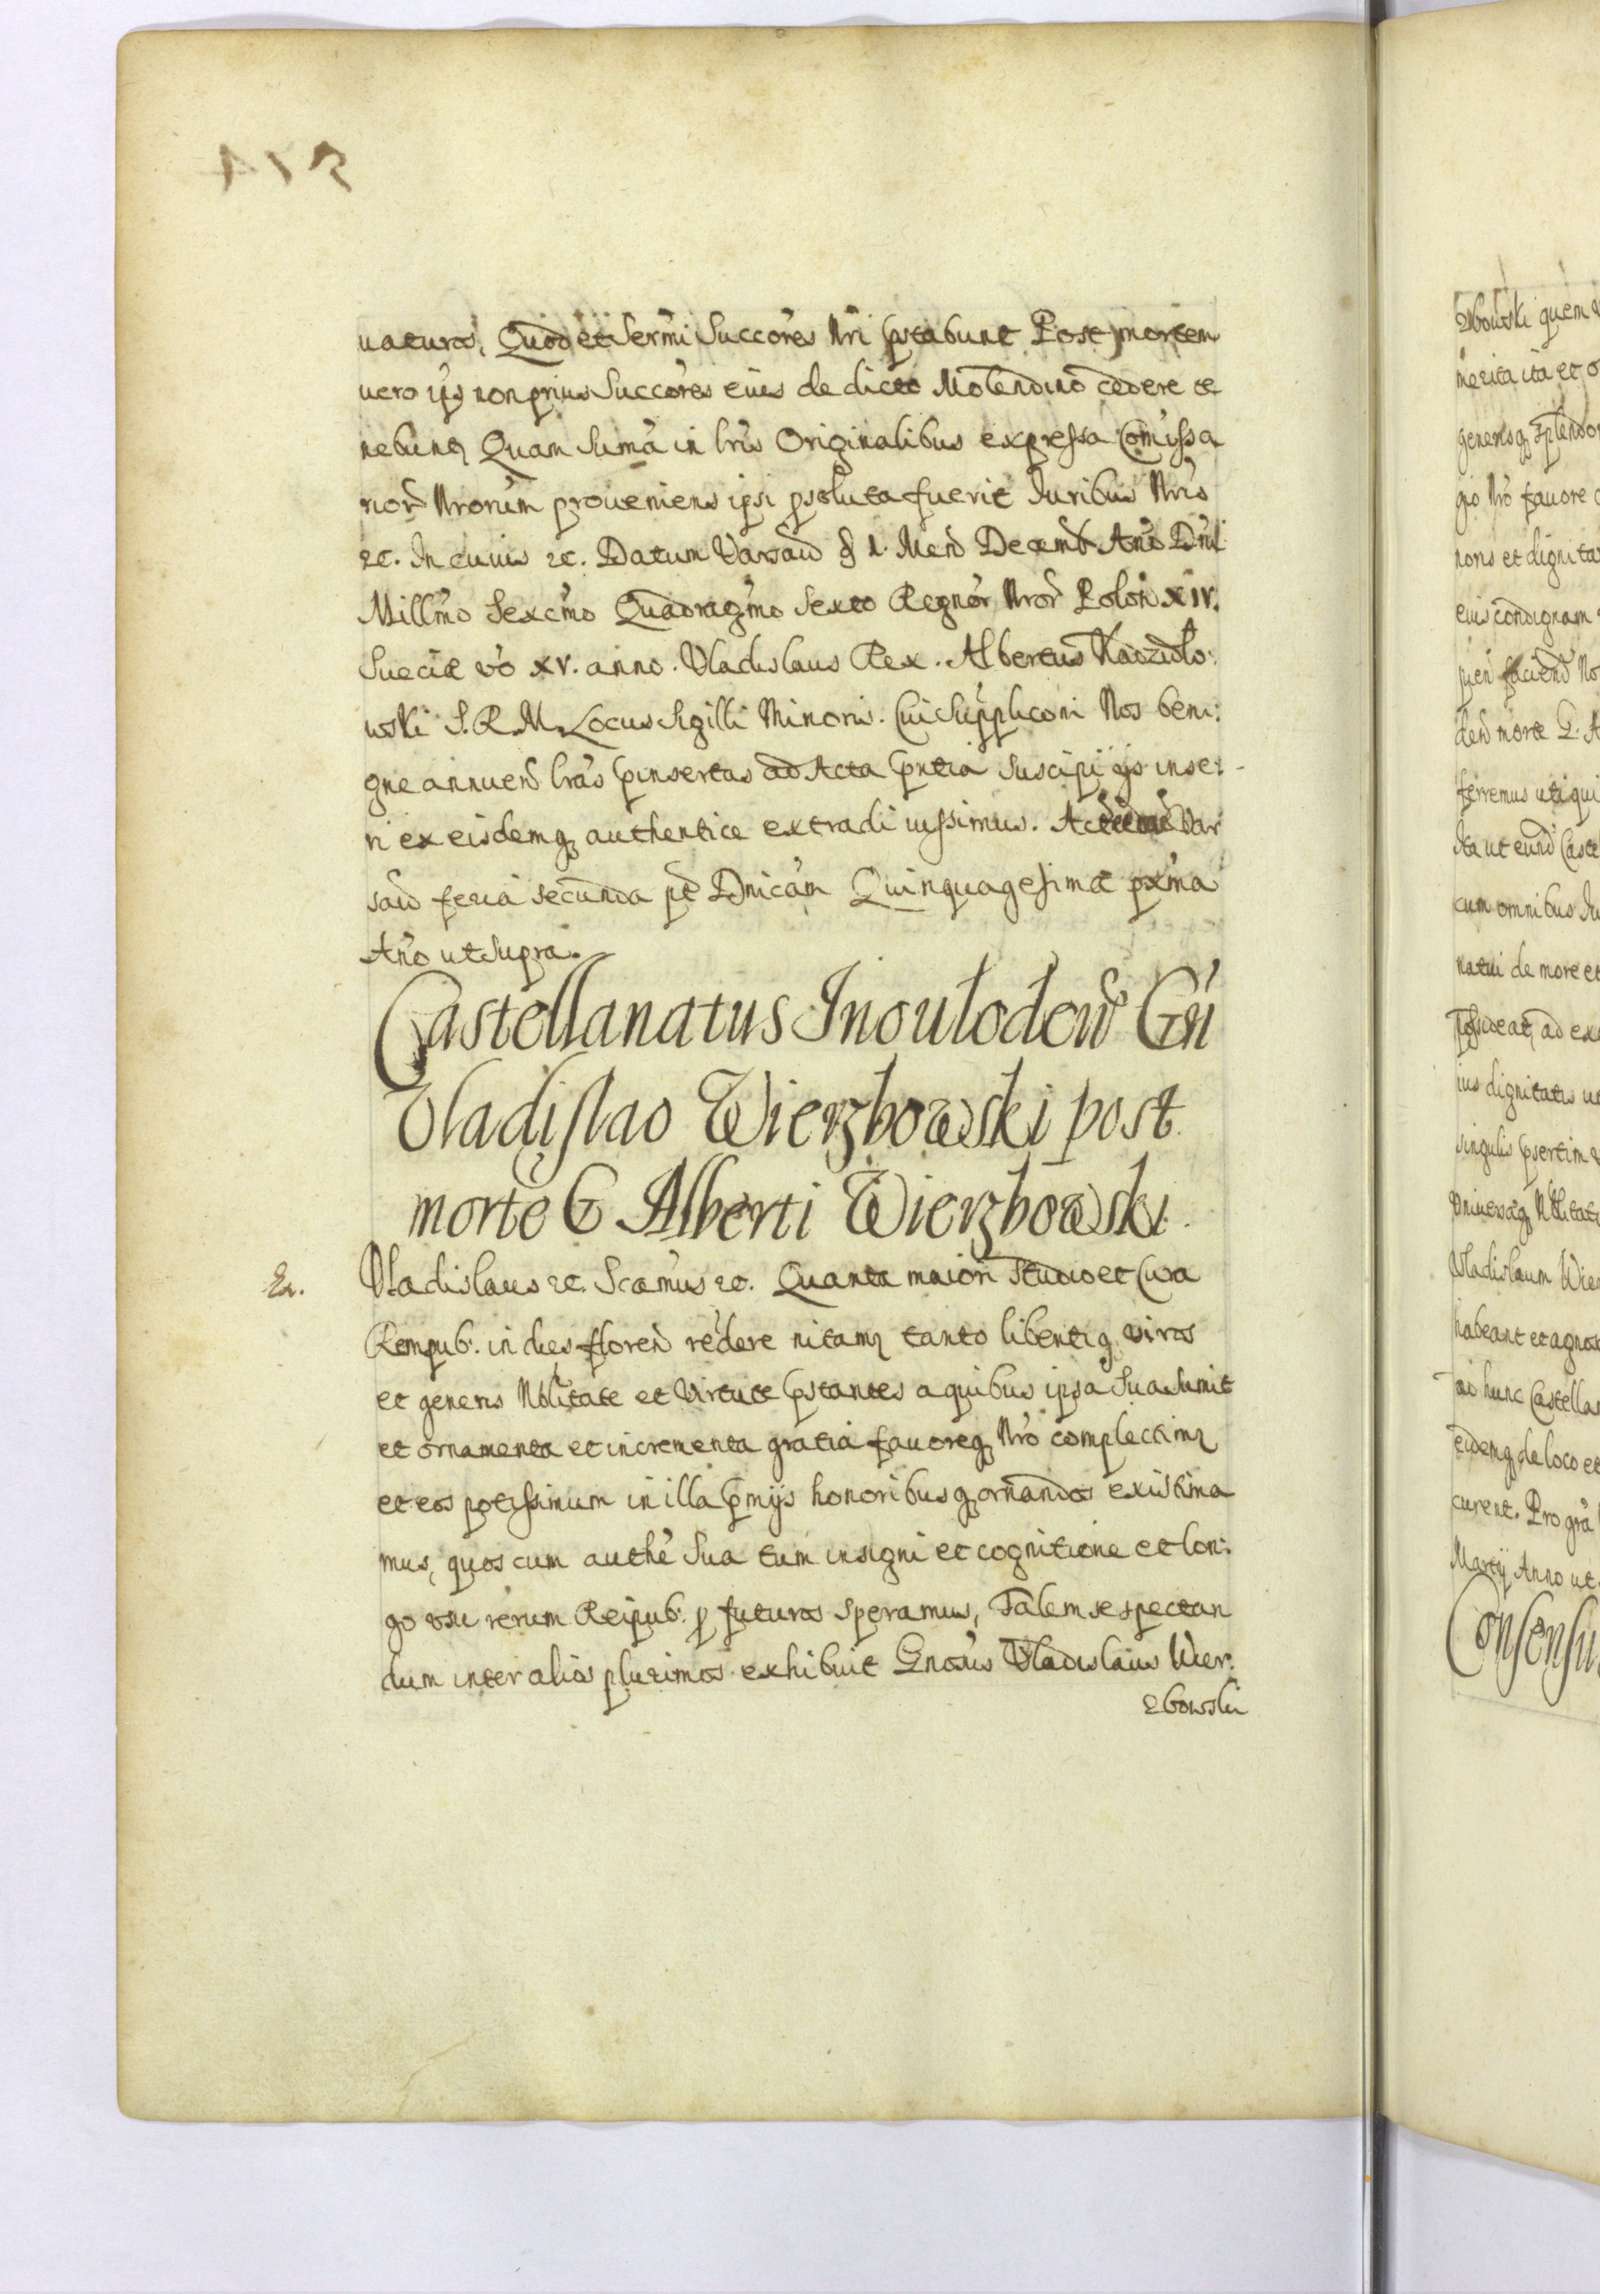 uaturos, Quod et Sermi Succores Nri pstabunt Post mortem
uero ips non prius Succores eius de dicto Molendino cedere te
nebunt Quam Suma in lris Originalibus expressa Comissa
rior Nrorum proueniens ipsi psoluta fuerit Juribus Nris
etc. In cuius etc. Datum Varsaw d 1. Mens Decemb Ano Dni
Millmo Sexcmo Quadragmo Sexto Regnor Nror Polon XIV.
Sueciæ vo XV. anno. Vladislaus Rex. Albertus Kadzidło:
wski S.R.M. Locus Sigilli Minoris. Cui Suppliconi Nos beni:
gne annuen lras pinsertas ad Acta pntia suscipi ijs inse:
ri ex eisdemq authentice extradi iussimus. Act Var
saw feria secunda pt Dnicam Quinquagesimæ pxma
Ano ut supra.
Castellanatus Inoulodew Gn
Vladislao Wierzbowski post
morte G Alberti Wierzbowski
Ex.
Vladislaus etc. Scamus etc. Quanta maiori studio et Cura
Rempub. in dies floren redere nitamr tanto libentiq viros
et generis Nblitate et Virtute pstantes a quibus ipsa sua sumit
et ornamenta et incrementa gratia fauoreq Nro complectimr
et eos potissimum in illa pmijs honoribusq ornandos existima
mus, quos cum authe sua tum insigni et cognitione et lon:
go usu rerum Reipub. p futuros speramus, Talem se spectan
dum inter alios plurimos exhibuit Gnosus Vladislaus Wier:
zbowski